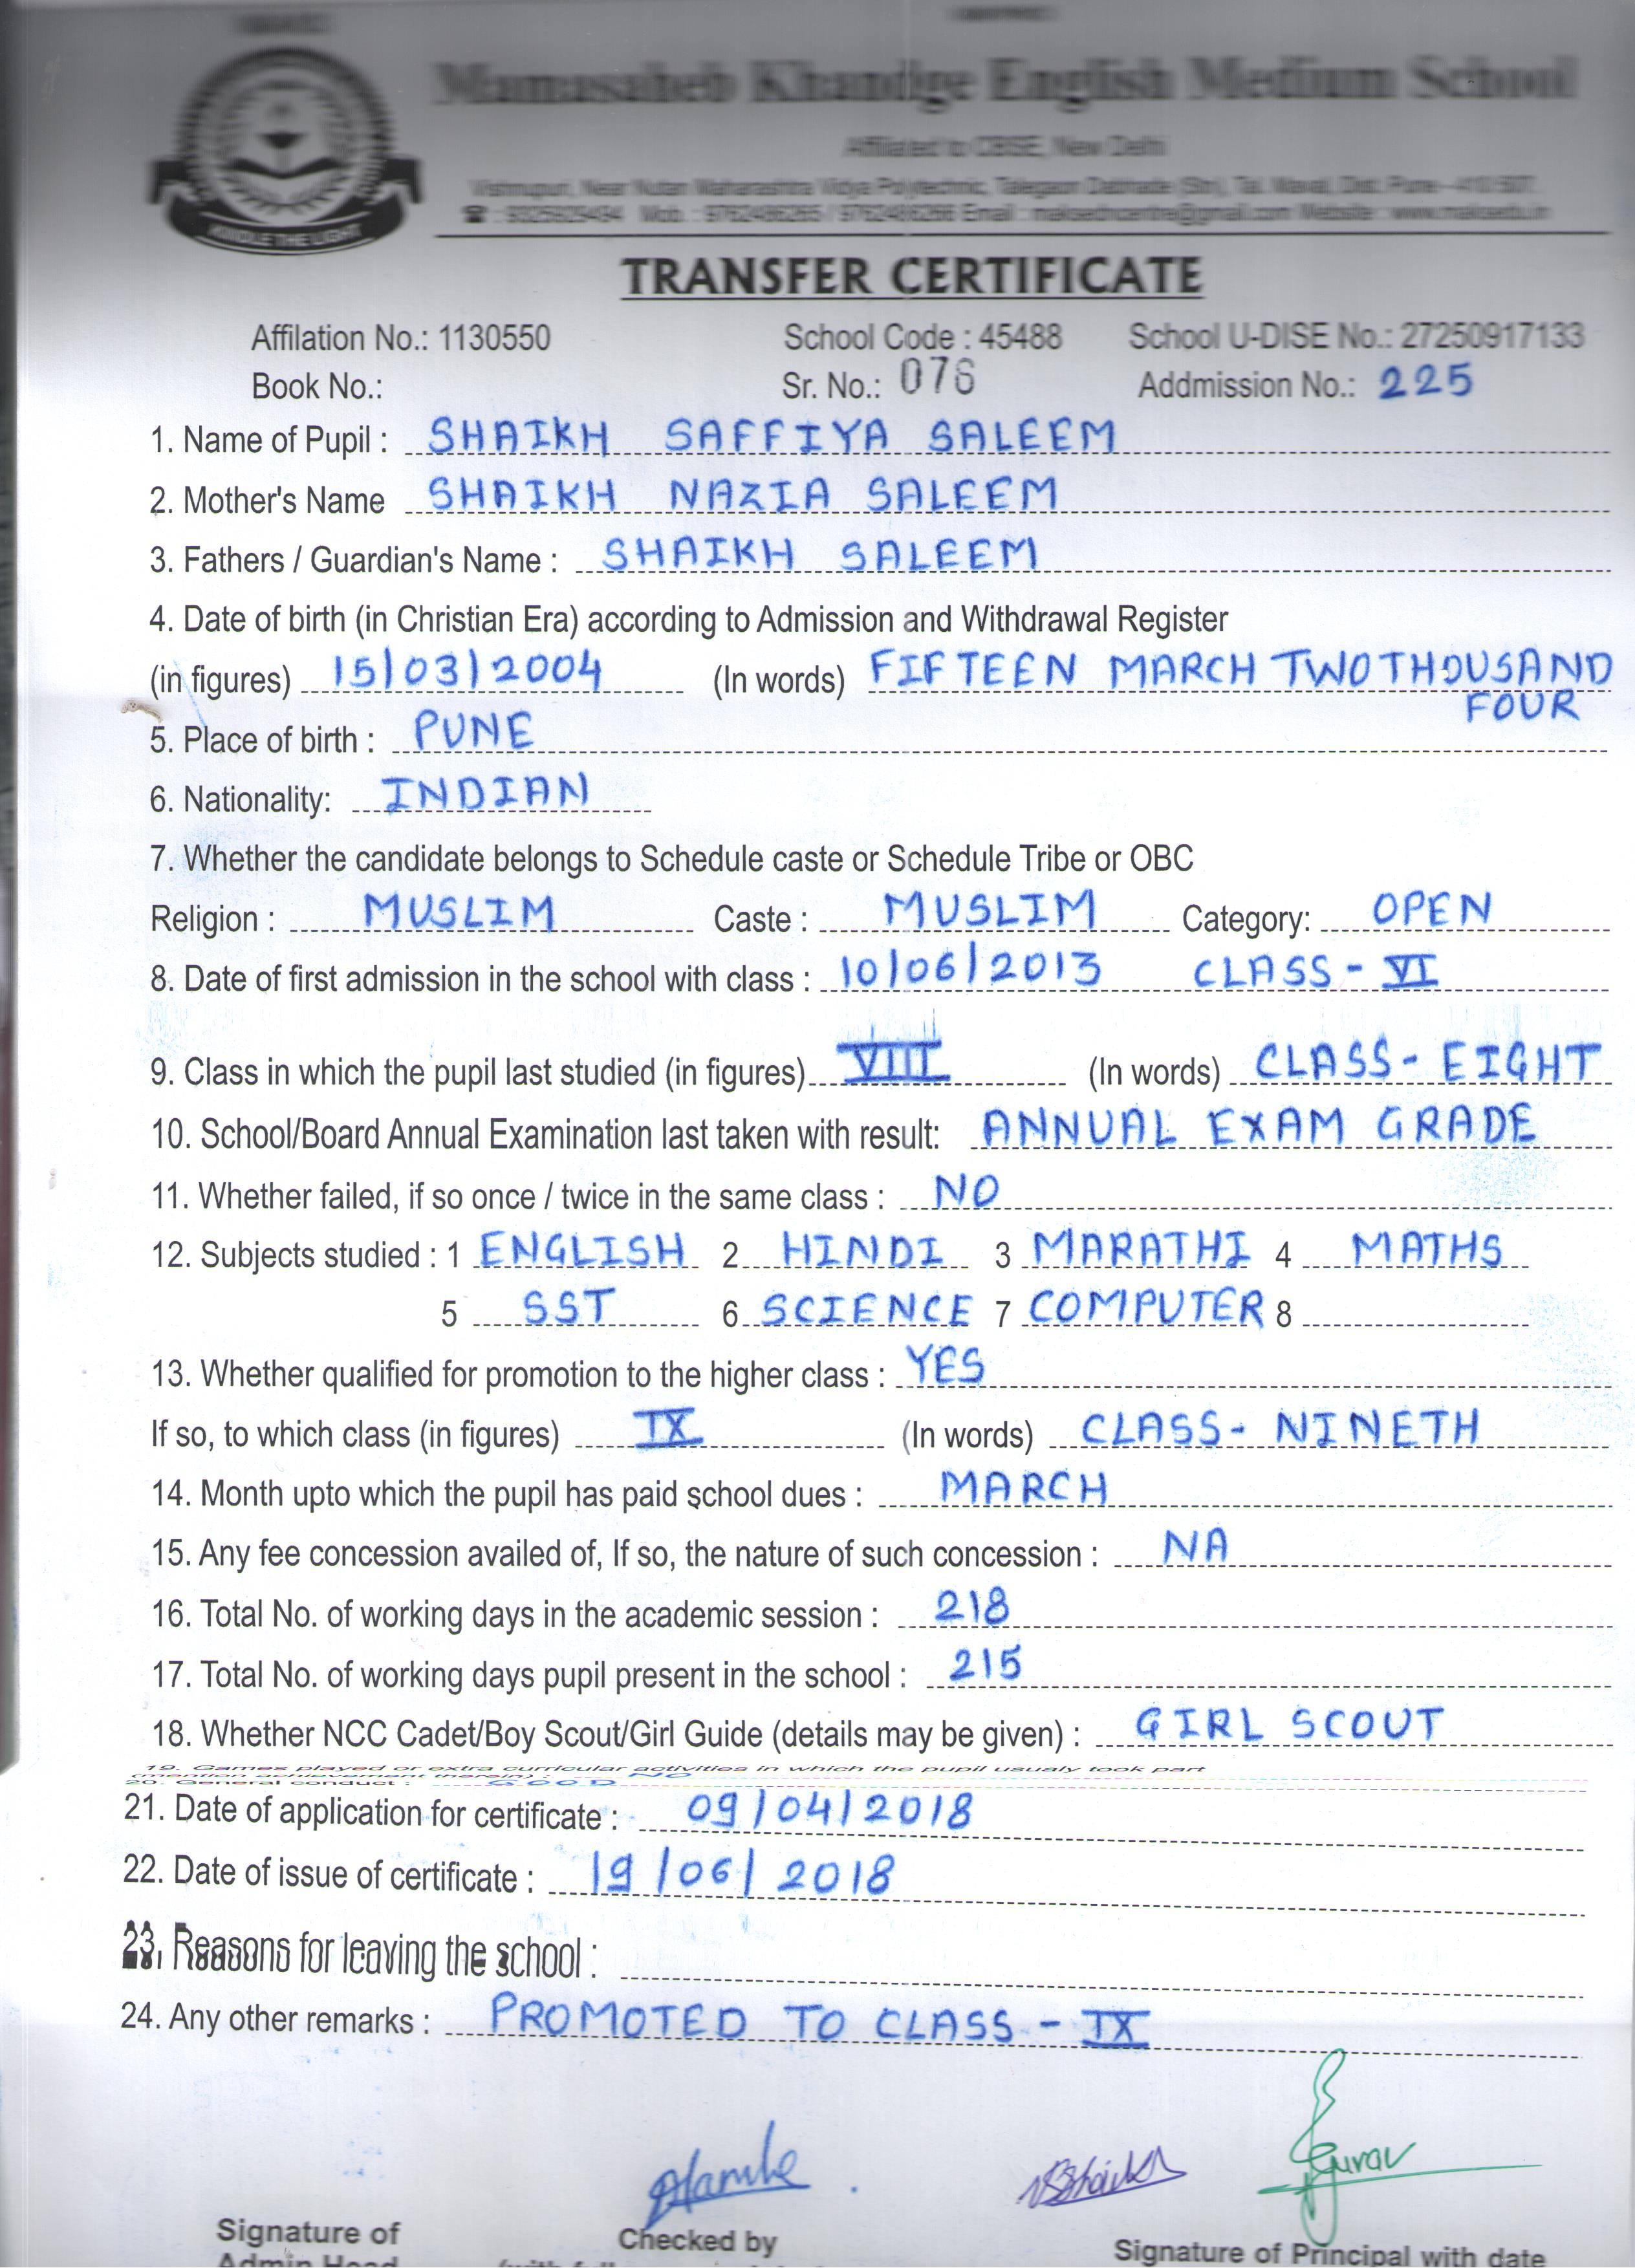 Mamasaheb Khandge English Medium School
Affiliated to CBSE, New Delhi
Vishnupuri, Near Nutan Maharashtra Vidya Polytechnic, Talegaon Dabhade (Stn), Tal. Maval, Dist. Pune - 410 507.
Mob. : 9762486265 / 9762486266 Email : Website :
KINDLE THE LIGHT
TRANSFER CERTIFICATE
Affilation No.: 1130550 School Code : 45488 School U-DISE No.: 27250917133
Book No.: Sr. No.: 076 Addmission No.: 225
1. Name of Pupil : SHAIKH SAFFIYA SALEEM
2. Mother's Name SHAIKH NAZIA SALEEM
3. Fathers / Guardian's Name : SHAIKH SALEEM
4. Date of birth (in Christian Era) according to Admission and Withdrawal Register
(in figures) 15/03/2004 (In words) FIFTEEN MARCH TWO THOUSAND
FOUR
5. Place of birth : PUNE
6. Nationality: INDIAN
7. Whether the candidate belongs to Schedule caste or Schedule Tribe or OBC
Religion : MUSLIM Caste : MUSLIM Category: OPEN
8. Date of first admission in the school with class : 10/06/2013 CLASS - VI
9. Class in which the pupil last studied (in figures) VIII (In words) CLASS - EIGHT
10. School/Board Annual Examination last taken with result: ANNUAL EXAM GRADE
11. Whether failed, if so once / twice in the same class : NO
12. Subjects studied : 1 ENGLISH 2 HINDI 3 MARATHI 4 MATHS
5 SST 6 SCIENCE 7 COMPUTER 8
13. Whether qualified for promotion to the higher class : YES
If so, to which class (in figures) IX (In words) CLASS - NINETH
14. Month upto which the pupil has paid school dues : MARCH
15. Any fee concession availed of, If so, the nature of such concession : NA
16. Total No. of working days in the academic session : 218
17. Total No. of working days pupil present in the school : 215
18. Whether NCC Cadet/Boy Scout/Girl Guide (details may be given) : GIRL SCOUT
19. Games played or extra curricular activities in which the pupil usualy took part
(mention achievement therein) : NO
20. General conduct : GOOD
21. Date of application for certificate : 09/04/2018
22. Date of issue of certificate : 19/06/2018
23. Reasons for leaving the school :
24. Any other remarks : PROMOTED TO CLASS - IX
Signature of Checked by Signature of Principal with date
Admin Head